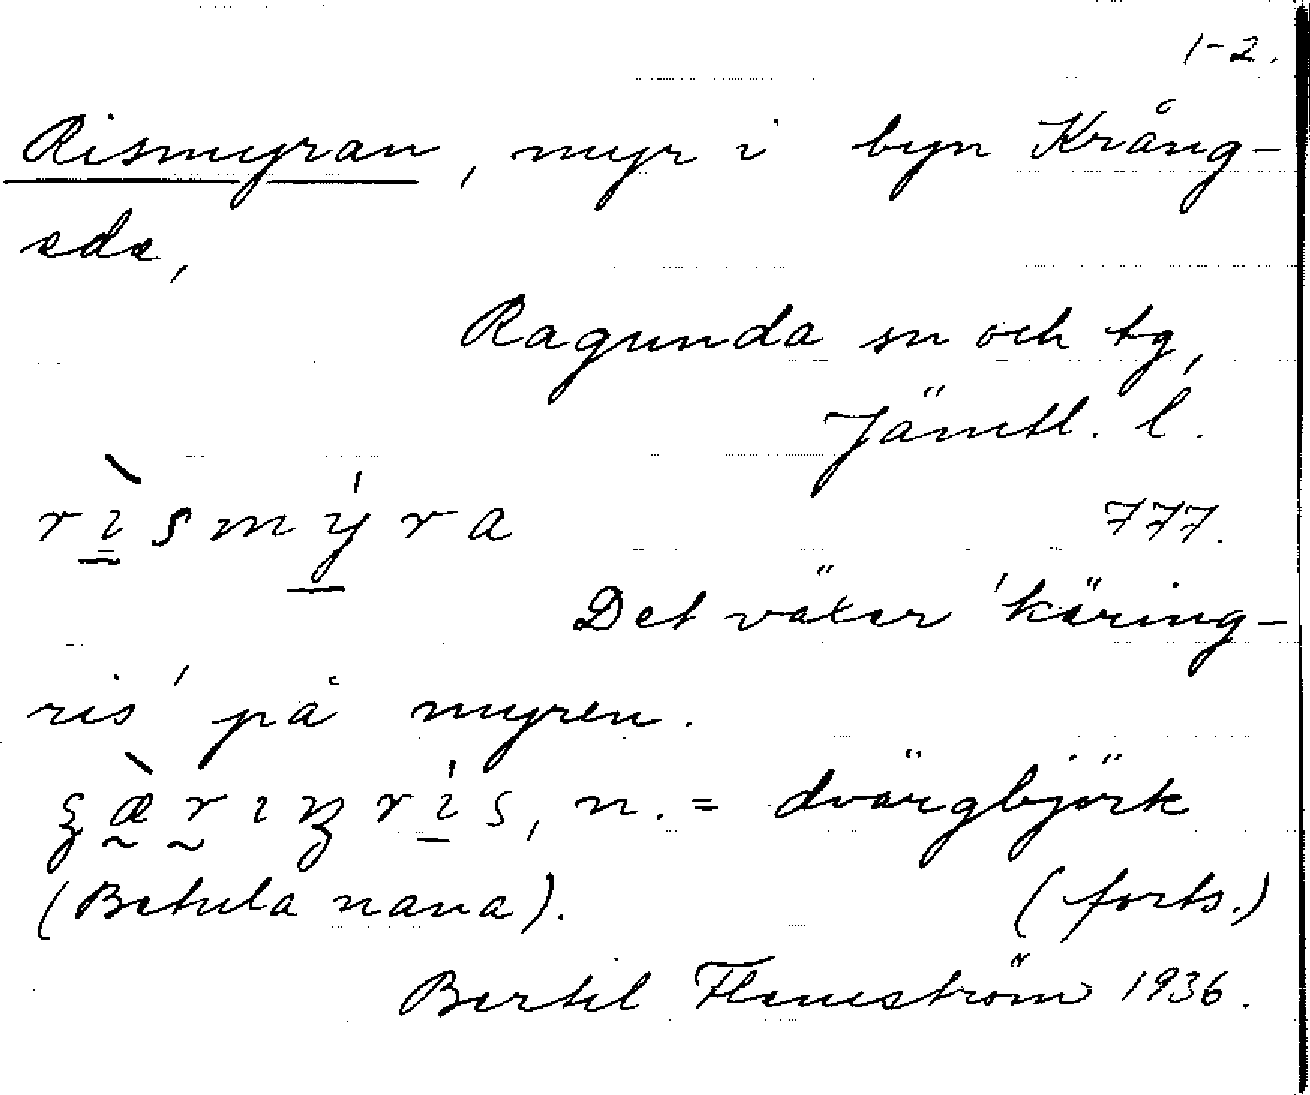 1-2.
Rismyran, myr i byn Krång-
ede,
Ragunda sn och tg,
Jämtl. l.
rìsmy̍ra 777.
Det växer 'käring-
ris' på myren.
n. = dvärgbjörk
(Betula nana). (forts.)
Bertil Flemström 1936.